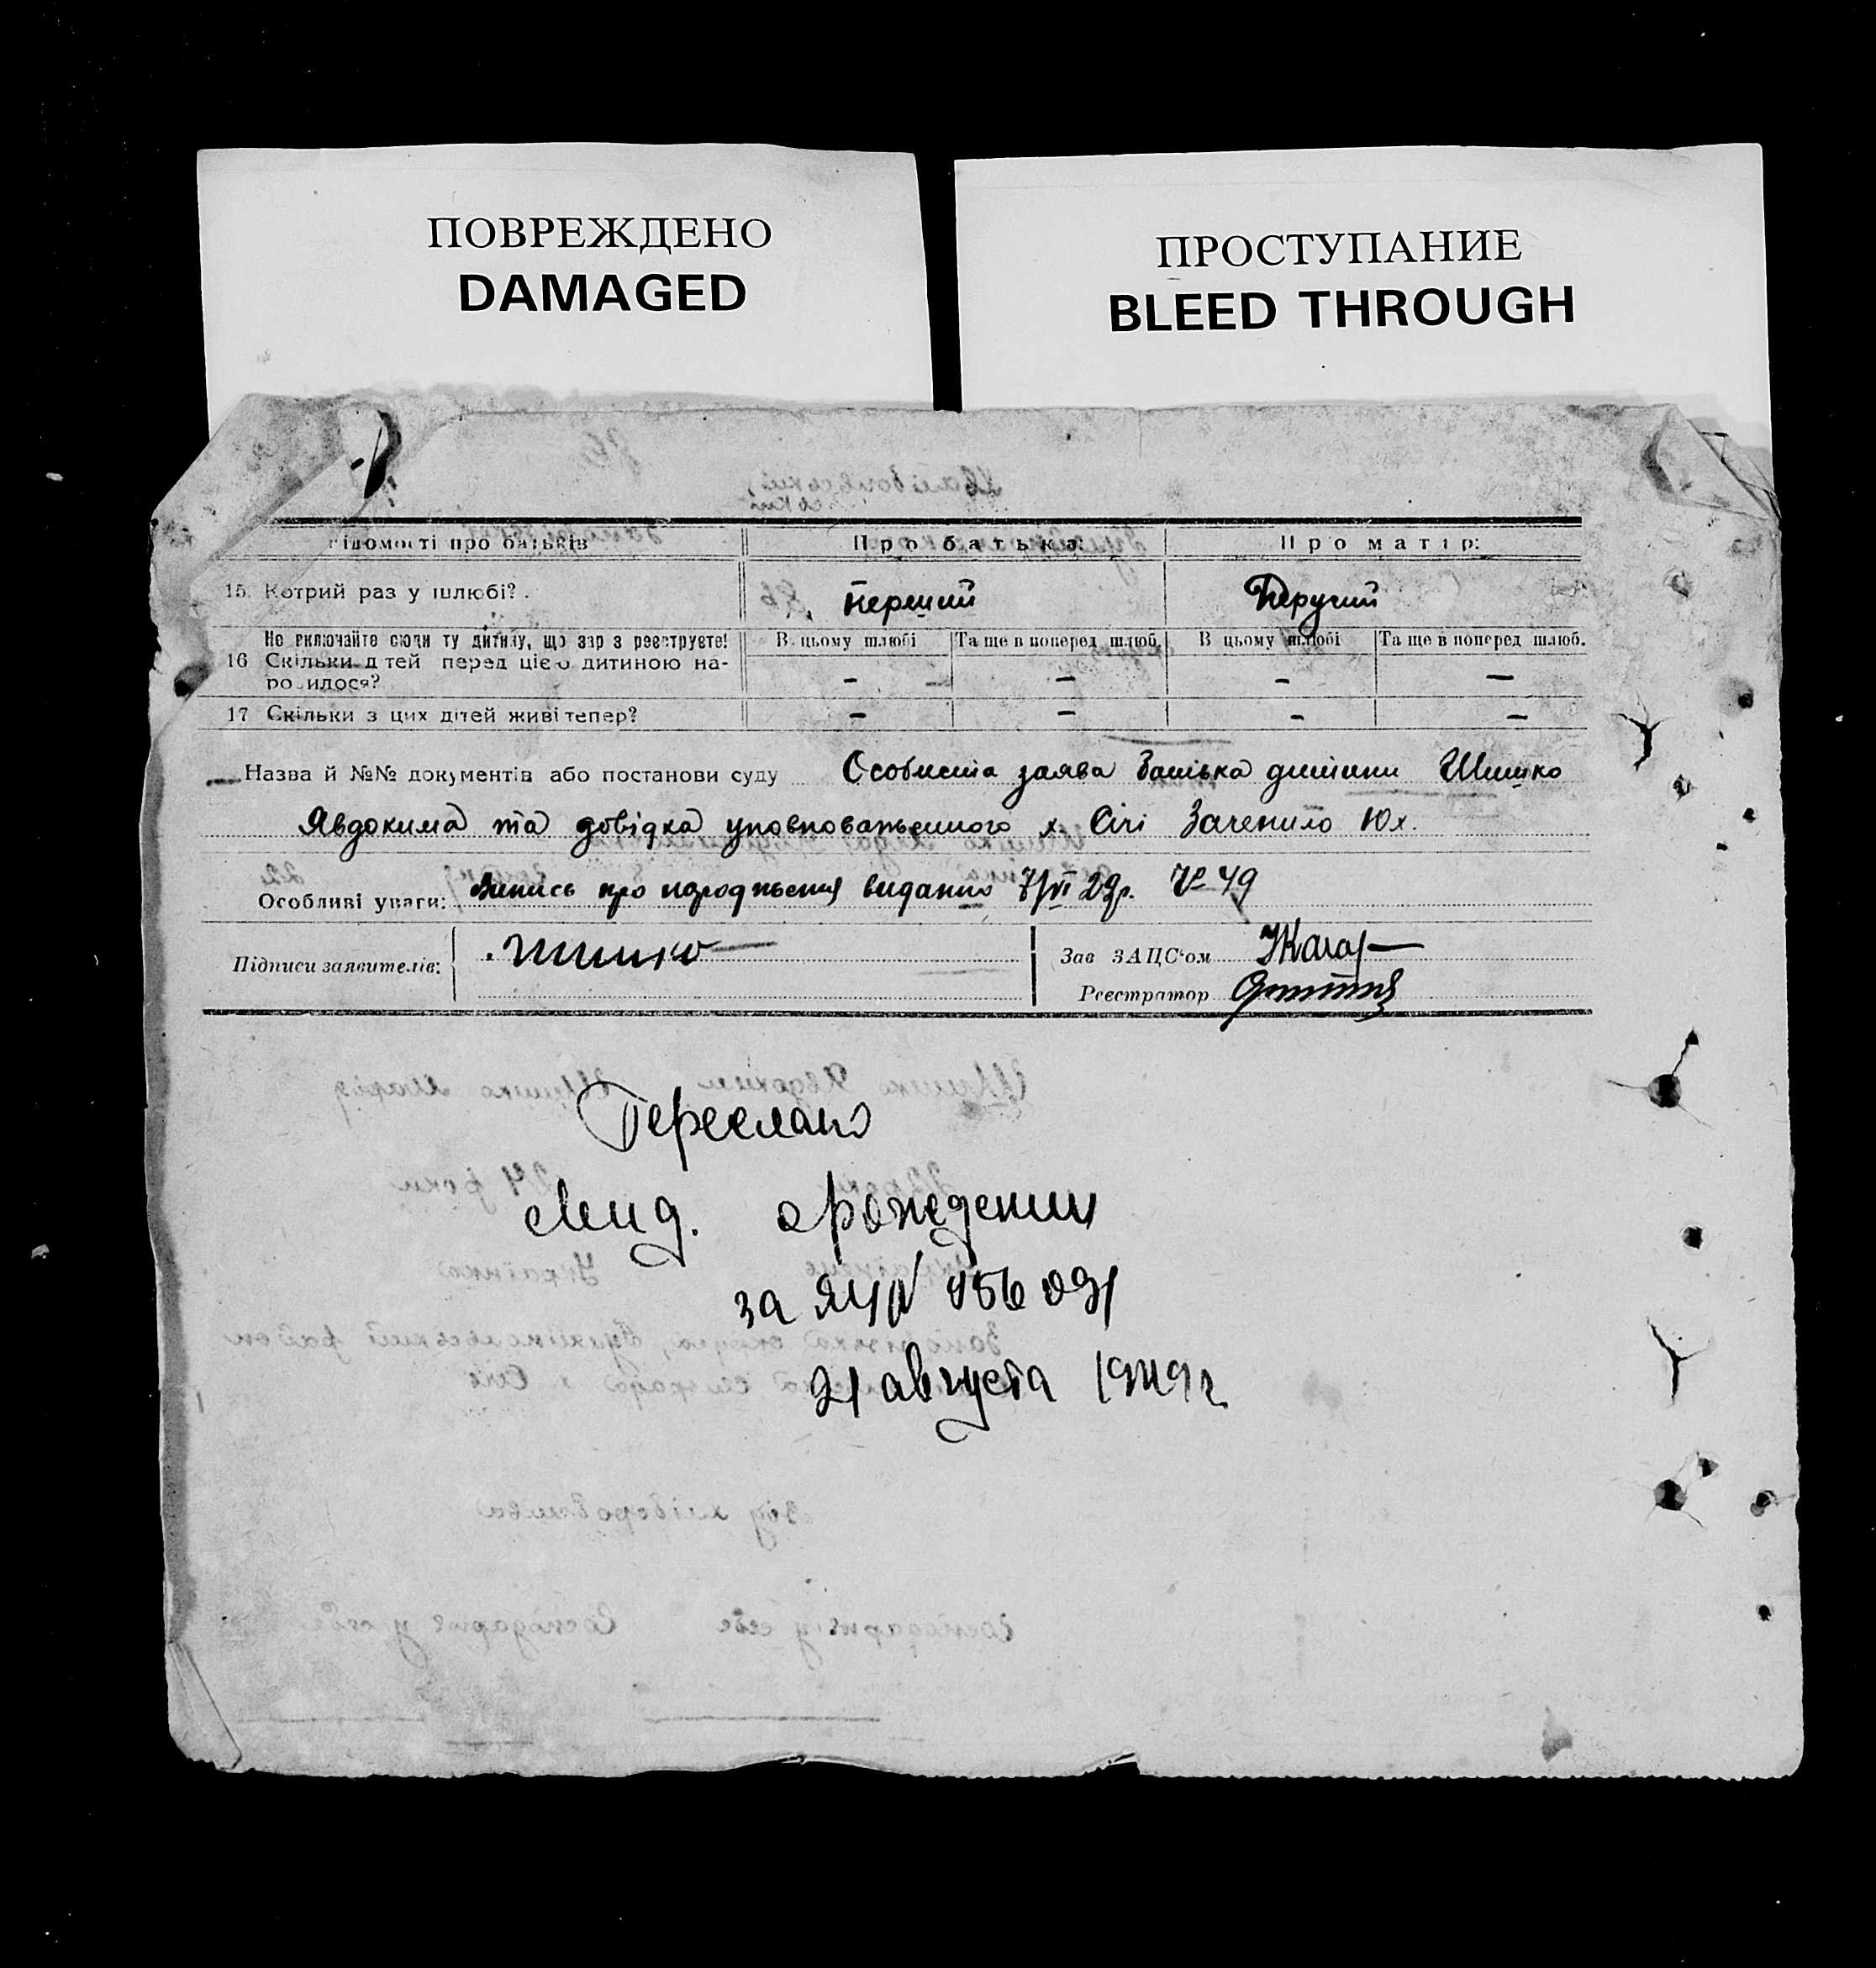 ПОВРЕЖДЕНО
DAMAGED
ПРОСТУПАНИЕ
BLEED THROUGH
Відомости про батьків Про батька: Про матір:
15. Котрий раз у шлюбі? перший Перший
Не включайте сюди ту дитину, що зараз реєструєте! В цьому шлюбі Та ще в поперед. шлюб. В цьому шлюбі Та ще в поперед. шлюб.
16 Скільки дітей перед цією дитиною на-
родилося? – – – –
17 Скільки з цих дітей живі тепер? – – – –
Назва й №№ документів або постанови суду Особиста заява батька дитини Шишко
Явдокима та довідка уповноваженного х. Січі
Особливі уваги: Випись про народження видано 7/VI 29р. № 49
Підписи заявителів: Шишко Зав ЗАЦС'ом
Реєстратор
Переслано
о рождении
за ЯЦ №
21 августа 1949 г.